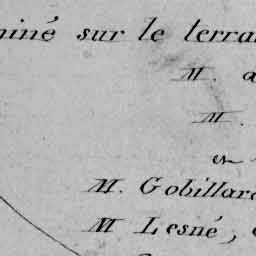 miné sur le terra
M. a
M.
en
M. Gobillar
M Lesné,